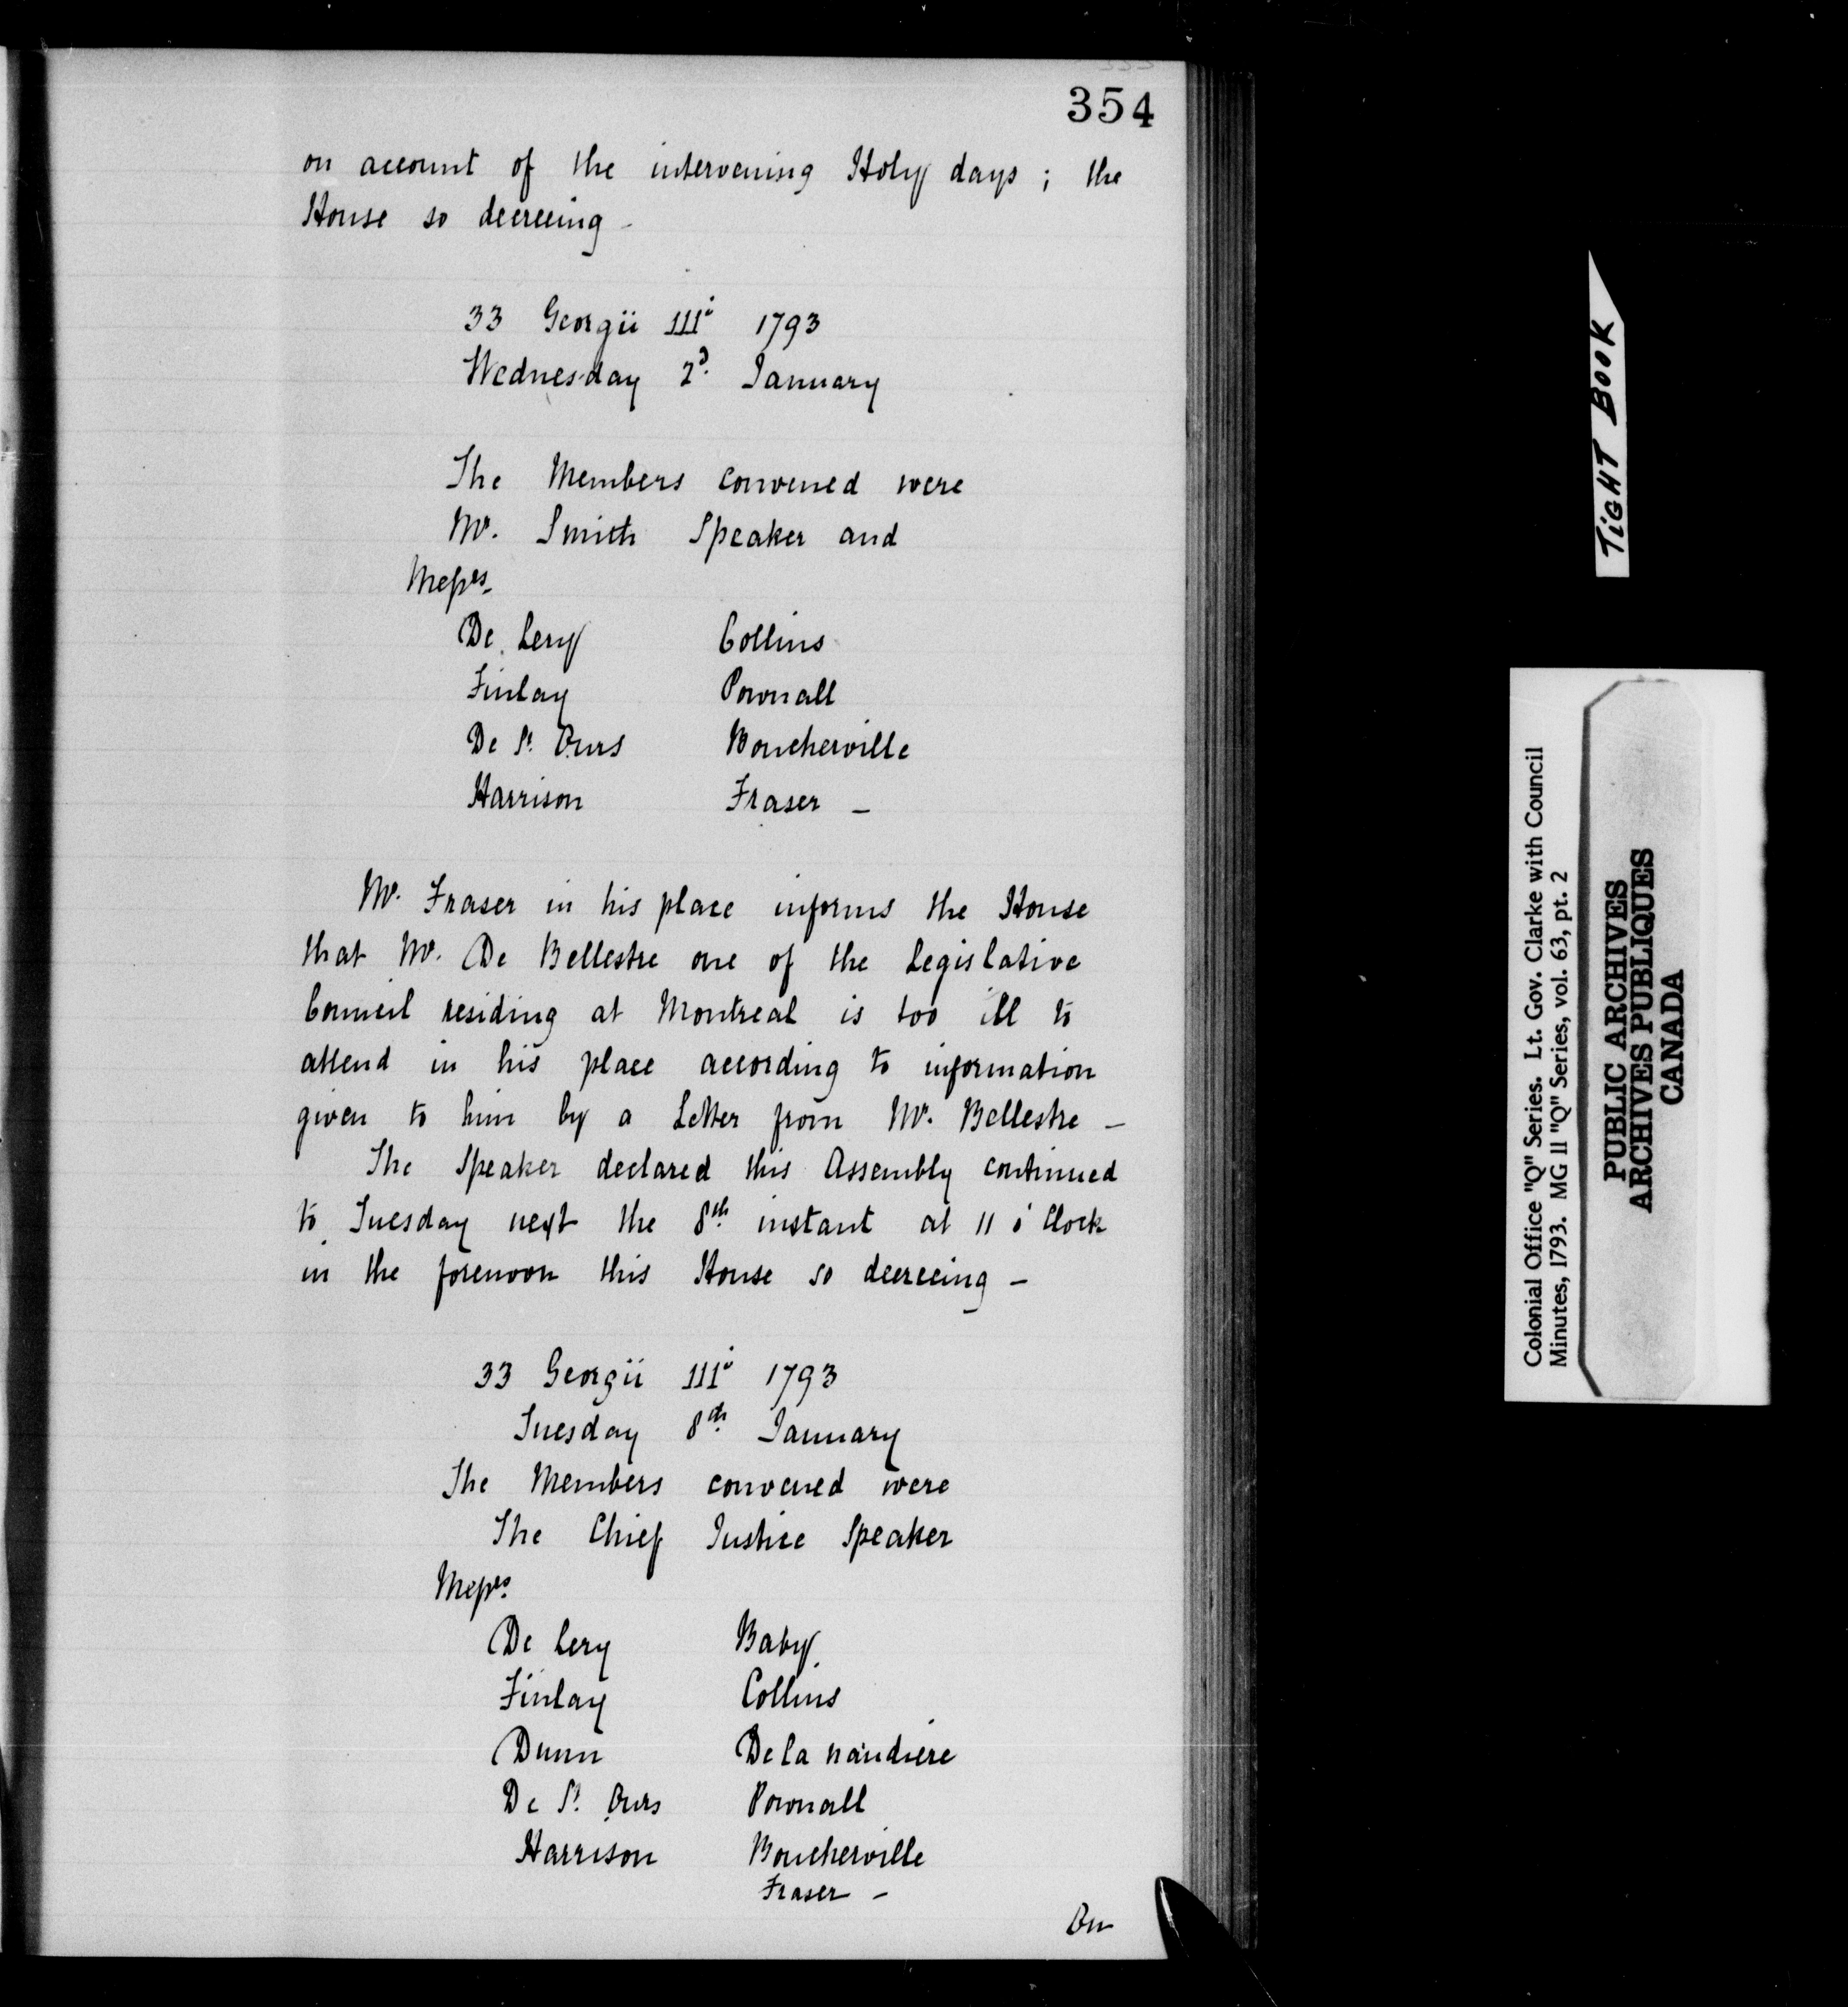 354
on account of the intervening Holy days ; the
House so decreeing -
33 Georgii IIIi 1793
Wednesday 2d. January
The Members convened were
Mr. Smith Speaker and
Messrs.
De Lery Collins
Finlay Pownall
De St. Ours Boucherville
Harrison Fraser -
Mr. Fraser in his place informs the House
that Mr. De Bellestre one of the Legislative
Council residing at Montreal is too ill to
attend in his place according to information
given to him by a Letter from Mr. Bellestre -
The Speaker declared this Assembly continued
to Tuesday next the 8th instant at 11 o'Clock
in the forenoon this House so decreeing -
33 Georgii IIIi 1793
Tuesday 8th. January
The Members convened were
The Chief Justice Speaker
Messrs.
De Lery Baby
Finlay Collins
Dunn De la naudiere
De St. Ours Pownall
Harrison Boucherville
Fraser -
On
TiGHT BOOK
Colonial Office "Q" Series. Lt. Gov. Clarke with Council
Minutes, 1793. MG 11 "Q" Series, vol. 63, pt. 2
PUBLIC ARCHIVES
ARCHIVES PUBLIQUES
CANADA